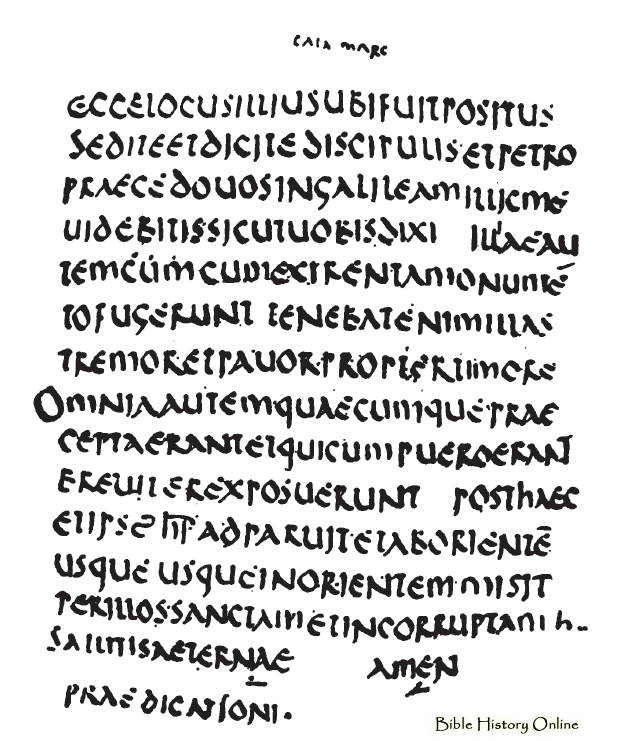 CATA MARC
ECCELOCUSILLIUSUBIFUITPOSITUS
SEDITEETDICITE DISCIPULIS ETPETRO
PRAECEDOUOSINGALILEAMILLICME
UIDEBITISSICUTUOBISDIXI ILLAEAU
TEMCUMCUMEXIRENTAMONUMĒ
TOFUGERUNT TENEBATENIMILLAS
TREMORETPAUOR·PROPTERTIMORE
OMNIAAUTEMQUAECUMQUEPRAE
CEPTAERANTETQUICUMPUEROERANT
BREUITEREXPOSUERUNT POSTHAEC
ETIPSE ADPARUITETABORIENTĒ
USQUE USQUEINORIENTEM MISIT
PERILLOSSANCTAMETINCORRUPTAM H··
SALUTISAETERNAE AMEN
PRAEDICATIONI·
Bible History Online